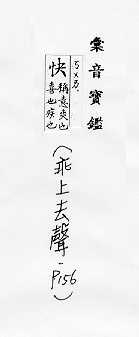 彙音寶鑑
ㄎㄨㄞ
快 稱意爽也
喜也疾也
(乖上去聲-P.156)